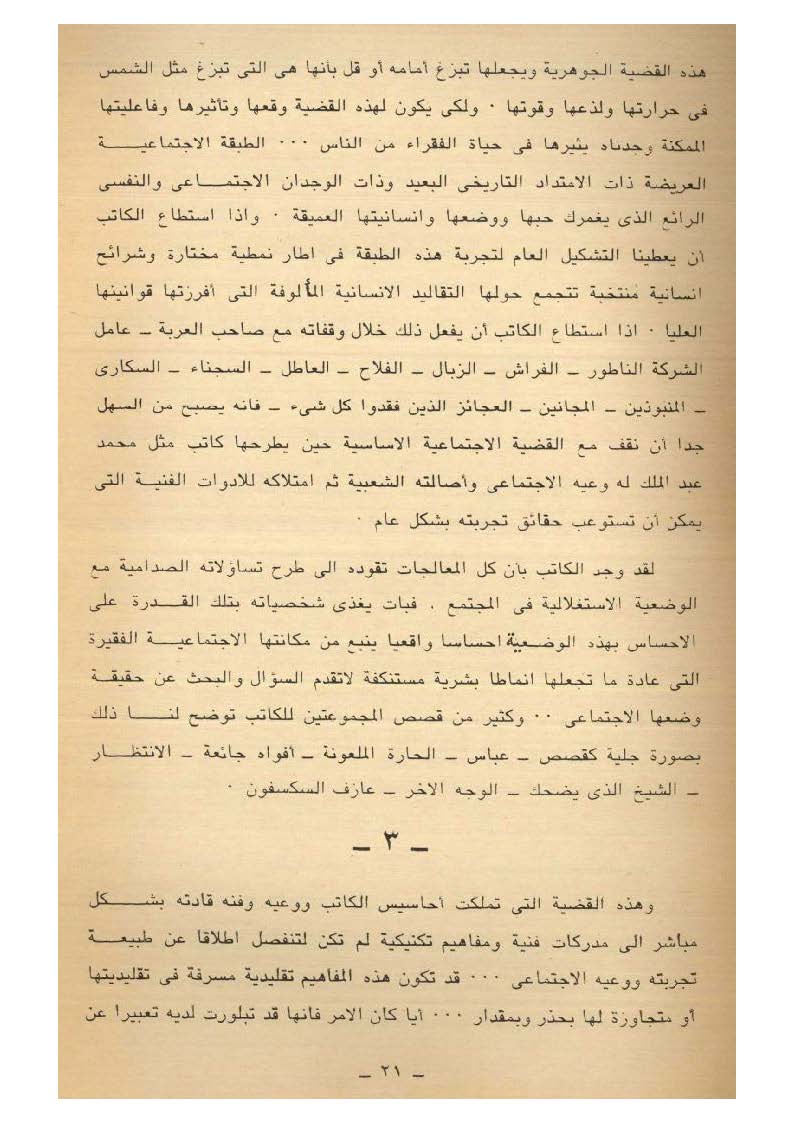 هذه القضية الجوهرية ويجعلها تبزغ أمامه أو قل بأنها هى التى تبزغ مثل الشمس
فى حرارتها ولذعها وقوتها ٠ ولكى يكون لهذه القضية وقعها وتأثيرها وفاعليتها
الممكنة وجدناه يثيرها فى حياة الفقراء من الناس ٠٠٠ الطبقة الاجتماعيـــة
العريضة ذات الامتداد التاريخى البعيد وذات الوجدان الاجتمـــاعى والنفسى
الرائع الذى يغمرك حبها ووضعها وانسانيتها العميقة ٠ واذا استطاع الكاتب
أن يعطينا التشكيل العام لتجربة هذه الطبقة فى اطار نمطية مختارة وشرائح
انسانية منتخبة تتجمع حولها التقاليد الانسانية المألوفة التى أفرزتها قوانينها
العليا ٠ اذا استطاع الكاتب أن يفعل ذلك خلال وقفاته مع صاحب العربة ــ عامل
الشركة الناطور ــ الفراش ــ الزبال ــ الفلاح ــ العاطل ــ السجناء ــ السكارى
ــ المنبوذين ــ المجانين ــ العجائز الذين فقدوا كل شىء ــ فانه يصبح من السهل
جدا أن نقف مع القضية الاجتماعية الاساسية حين يطرحها كاتب مثل محمد
عبد الملك له وعيه الاجتماعى وأصالته الشعبية ثم امتلاكه للادوات الفنيــة التى
يمكن أن تستوعب حقائق تجربته بشكل عام ٠
لقد وجد الكاتب بأن كل المعالجات تقوده الى طرح تساؤلاته الصدامية مع
الوضعية الاستغلالية فى المجتمع . فبات يغذى شخصياته بتلك القــدرة على
الاحساس بهذه الوضعية احساسا واقعيا ينبع من مكانتها الاجتماعيـــة الفقيرة
التى عادة ما تجعلها انماطا بشرية مستنكفة لاتقدم السؤال والبحث عن حقيقــة
وضعها الاجتماعى ٠٠ وكثير من قصص المجموعتين للكاتب توضح لنـــا ذلك
بصورة جلية كقصص ــ عباس ــ الحارة الملعونة ــ أفواه جائعة ــ الانتظــار
ــ الشيخ الذى يضحك ــ الوجه الاخر ــ عازف السكسفون ٠
ــ ٣ ــ
وهذه القضية التى تملكت أحاسيس الكاتب ووعيه وفنه قادته بشــــكل
مباشر الى مدركات فنية ومفاهيم تكنيكية لم تكن لتنفصل اطلاقا عن طبيعـــة
تجربته ووعيه الاجتماعى ٠٠٠ قد تكون هذه المفاهيم تقليدية مسرفة فى تقليديتها
أو متجاوزة لها بحذر وبمقدار ٠٠٠ أيا كان الامر فانها قد تبلورت لديه تعبيرا عن
ــ ٢١ ــ